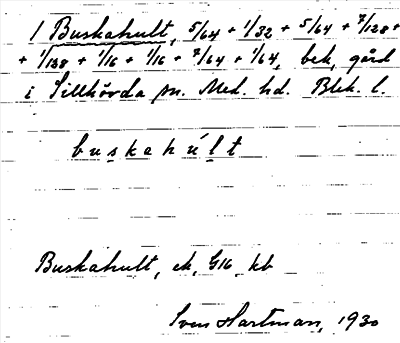 1 Buskahult, 5/64 + 1/32 + 5/64 + 7/128 +
+ 1/128 + 1/16 + 1/16 + 7/64 + 1/64, bek, gård
i Sillhövda sn. Med. hd. Blek. l.
buskahúlt
Buskahult, ek, G16 kb
Sven Hartman, 1930